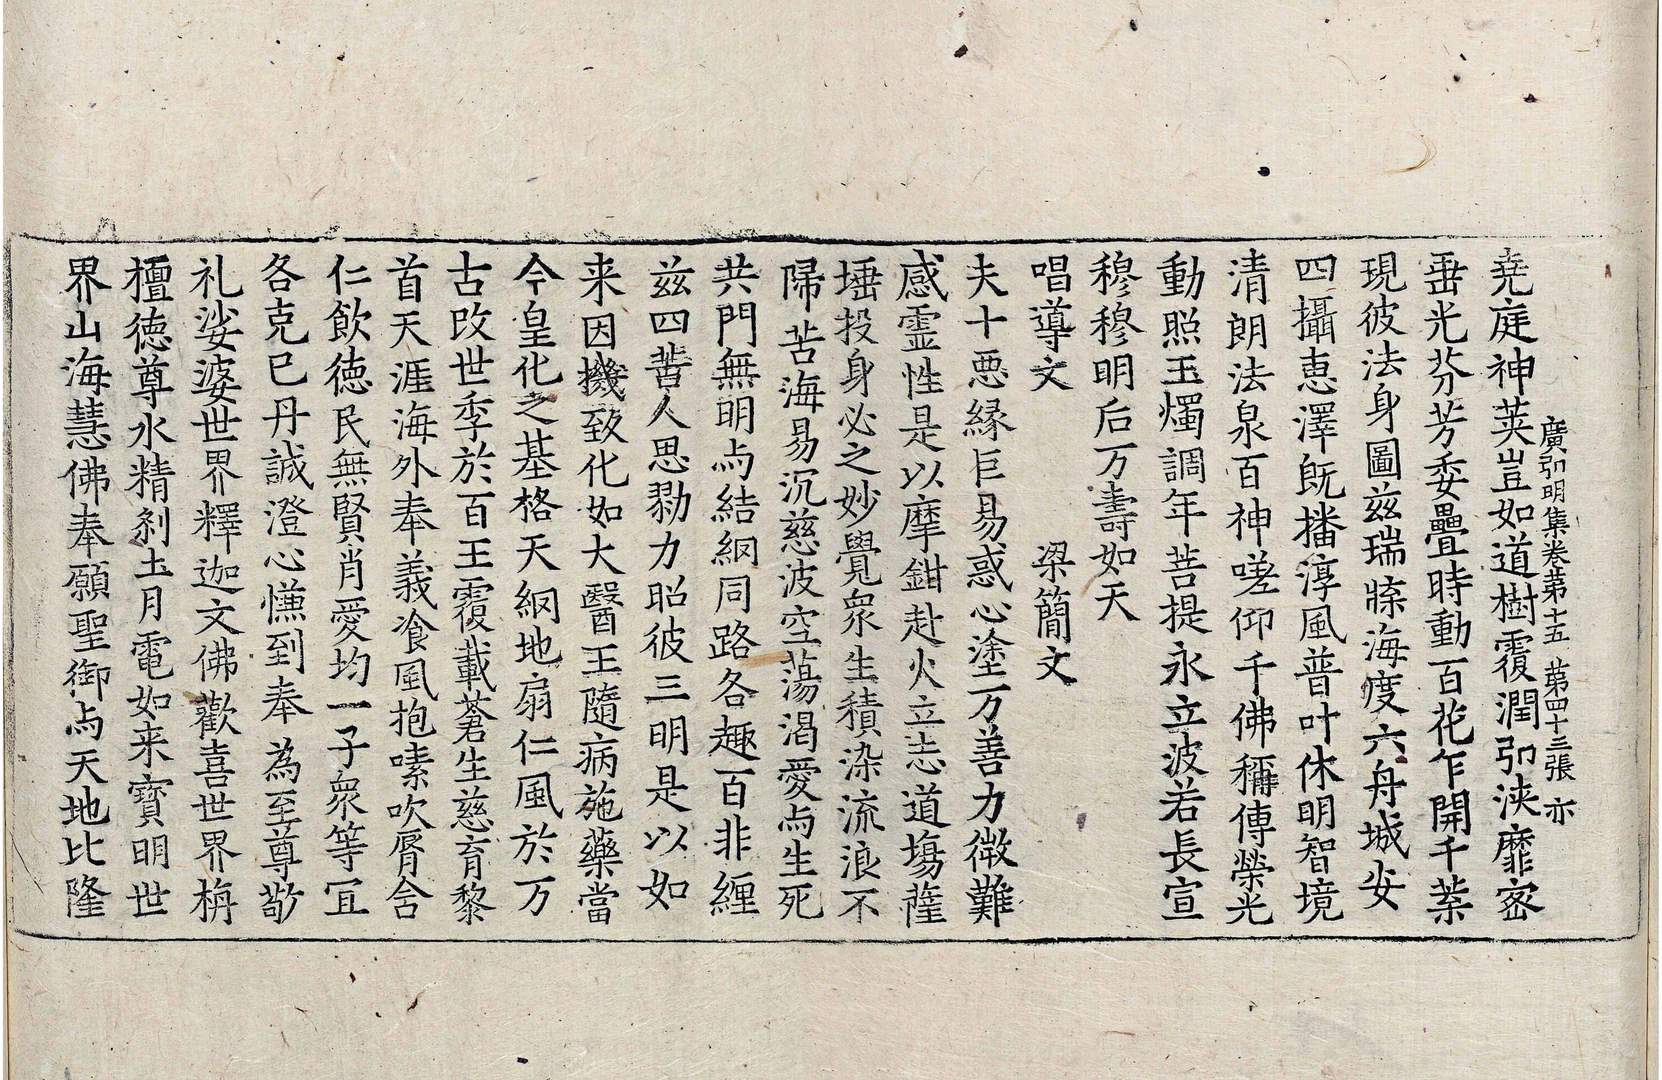 廣弘明集卷第十五 第四十三張 亦
堯庭神莢豈如道樹覆潤弘浹靡密
垂光芬芳委疊時動百花乍開千葉
現彼法身圖兹瑞牒海度六舟城安
四攝恵澤旣播淳風普叶休明智境
清朗法泉百神嗟仰千佛稱傳榮光
動照玉燭調年菩提永立波若長宣
穆穆明后万壽如天
唱導文 梁簡文
夫十悪縁巨易惑心塗万善力微難
感霊性是以摩鉗赴火立志道場薩
埵投身必之妙覺衆生積染流浪不
歸苦海易沉慈波空蕩渴愛与生死
共門無明与結網同路各趣百非纏
兹四苦人思勠力昭彼三明是以如
来因機致化如大醫王隨病施藥當
今皇化之基格天網地扇仁風於万
古改世季於百王覆載蒼生慈育黎
首天涯海外奉義飡風抱嗉吹脣含
仁飲徳民無賢肖愛均一子衆等冝
各克已丹誠澄心慊到奉為至尊敬
礼娑婆世界釋迦文佛歡喜世界栴
檀徳尊水精刹土月電如来寶明世
界山海慧佛奉願聖御与天地比隆